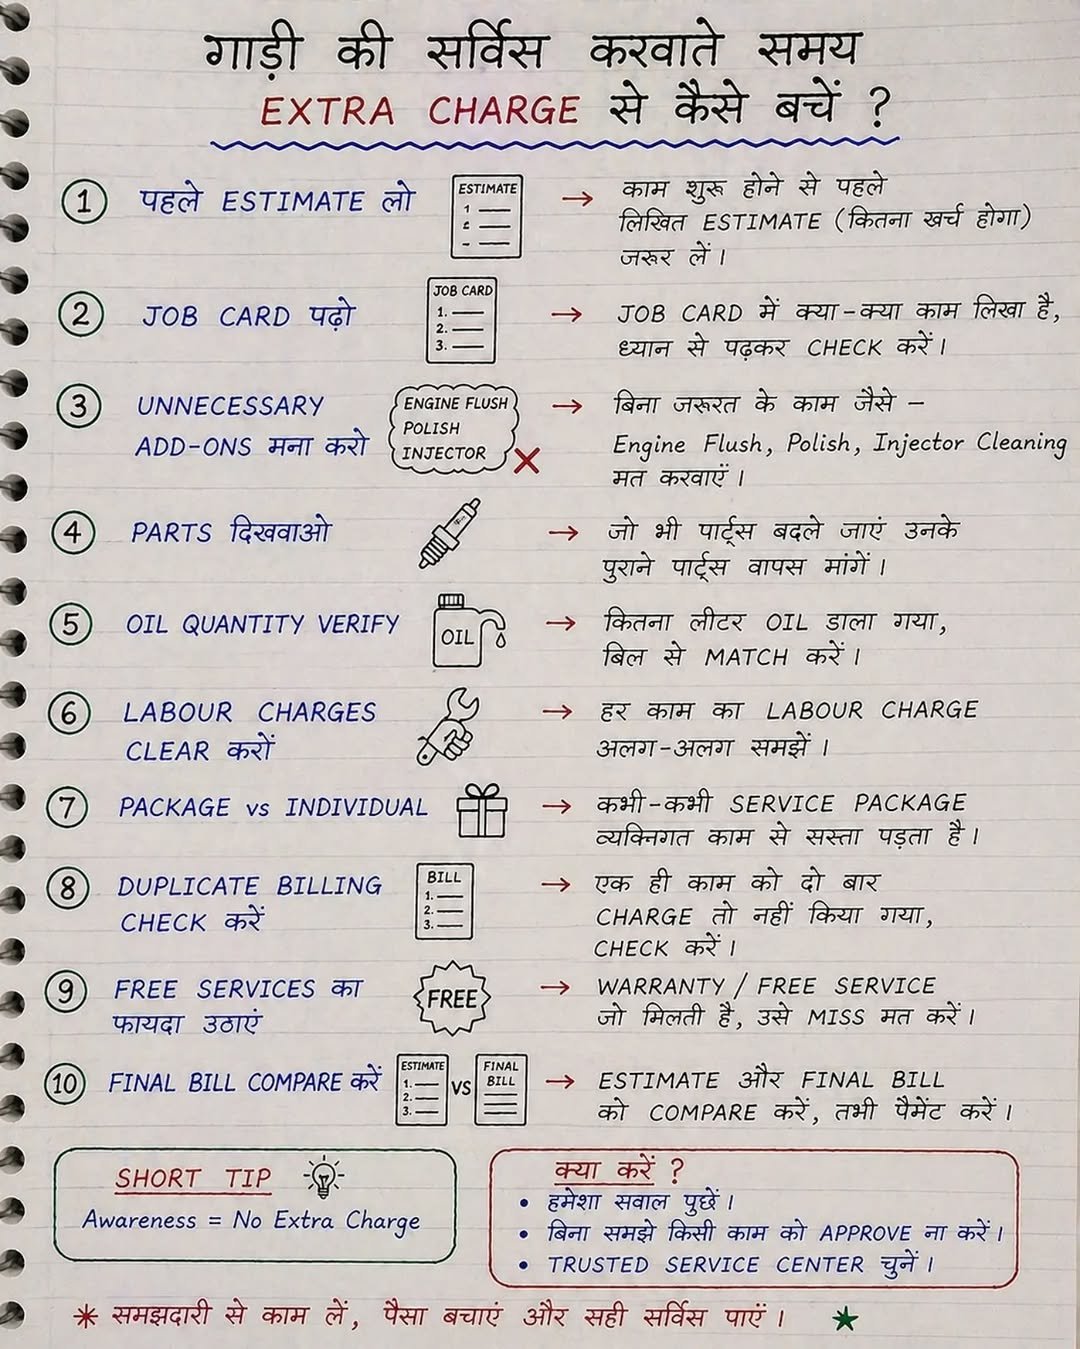 गाड़ी की सर्विस करवाते समय
EXTRA CHARGE से कैसे बचें ?
1 पहले ESTIMATE लो
ESTIMATE
1
→ काम शुरू होने से पहले
लिखित ESTIMATE (कितना खर्च होगा)
जरूर लें।
2 JOB CARD पढ़ो
JOB CARD
1.
2.
3.
→ JOB CARD में क्या-क्या काम लिखा है,
ध्यान से पढ़कर CHECK करें।
3 UNNECESSARY
ADD-ONS मना करो
ENGINE FLUSH
POLISH
INJECTOR
→ बिना जरूरत के काम जैसे –
Engine Flush, Polish, Injector Cleaning
मत करवाएं।
4 PARTS दिखवाओ
→ जो भी पार्ट्स बदले जाएं उनके
पुराने पार्ट्स वापस मांगें।
5 OIL QUANTITY VERIFY
OIL
→ कितना लीटर OIL डाला गया,
बिल से MATCH करें।
6 LABOUR CHARGES
CLEAR करों
→ हर काम का LABOUR CHARGE
अलग-अलग समझें।
7 PACKAGE vs INDIVIDUAL
→ कभी-कभी SERVICE PACKAGE
व्यक्निगत काम से सस्ता पड़ता है।
8 DUPLICATE BILLING
CHECK करें
BILL
1.
2.
3.
→ एक ही काम को दो बार
CHARGE तो नहीं किया गया,
CHECK करें।
9 FREE SERVICES का
फायदा उठाएं
FREE
→ WARRANTY / FREE SERVICE
जो मिलती है, उसे MISS मत करें।
10 FINAL BILL COMPARE करें
ESTIMATE
1.
2.
3.
VS
FINAL
BILL
→ ESTIMATE और FINAL BILL
को COMPARE करें, तभी पैमेंट करें।
SHORT TIP
Awareness = No Extra Charge
क्या करें ?
• हमेशा सवाल पुछें।
• बिना समझे किसी काम को APPROVE ना करें।
• TRUSTED SERVICE CENTER चुनें।
* समझदारी से काम लें, पैसा बचाएं और सही सर्विस पाएँ। ★